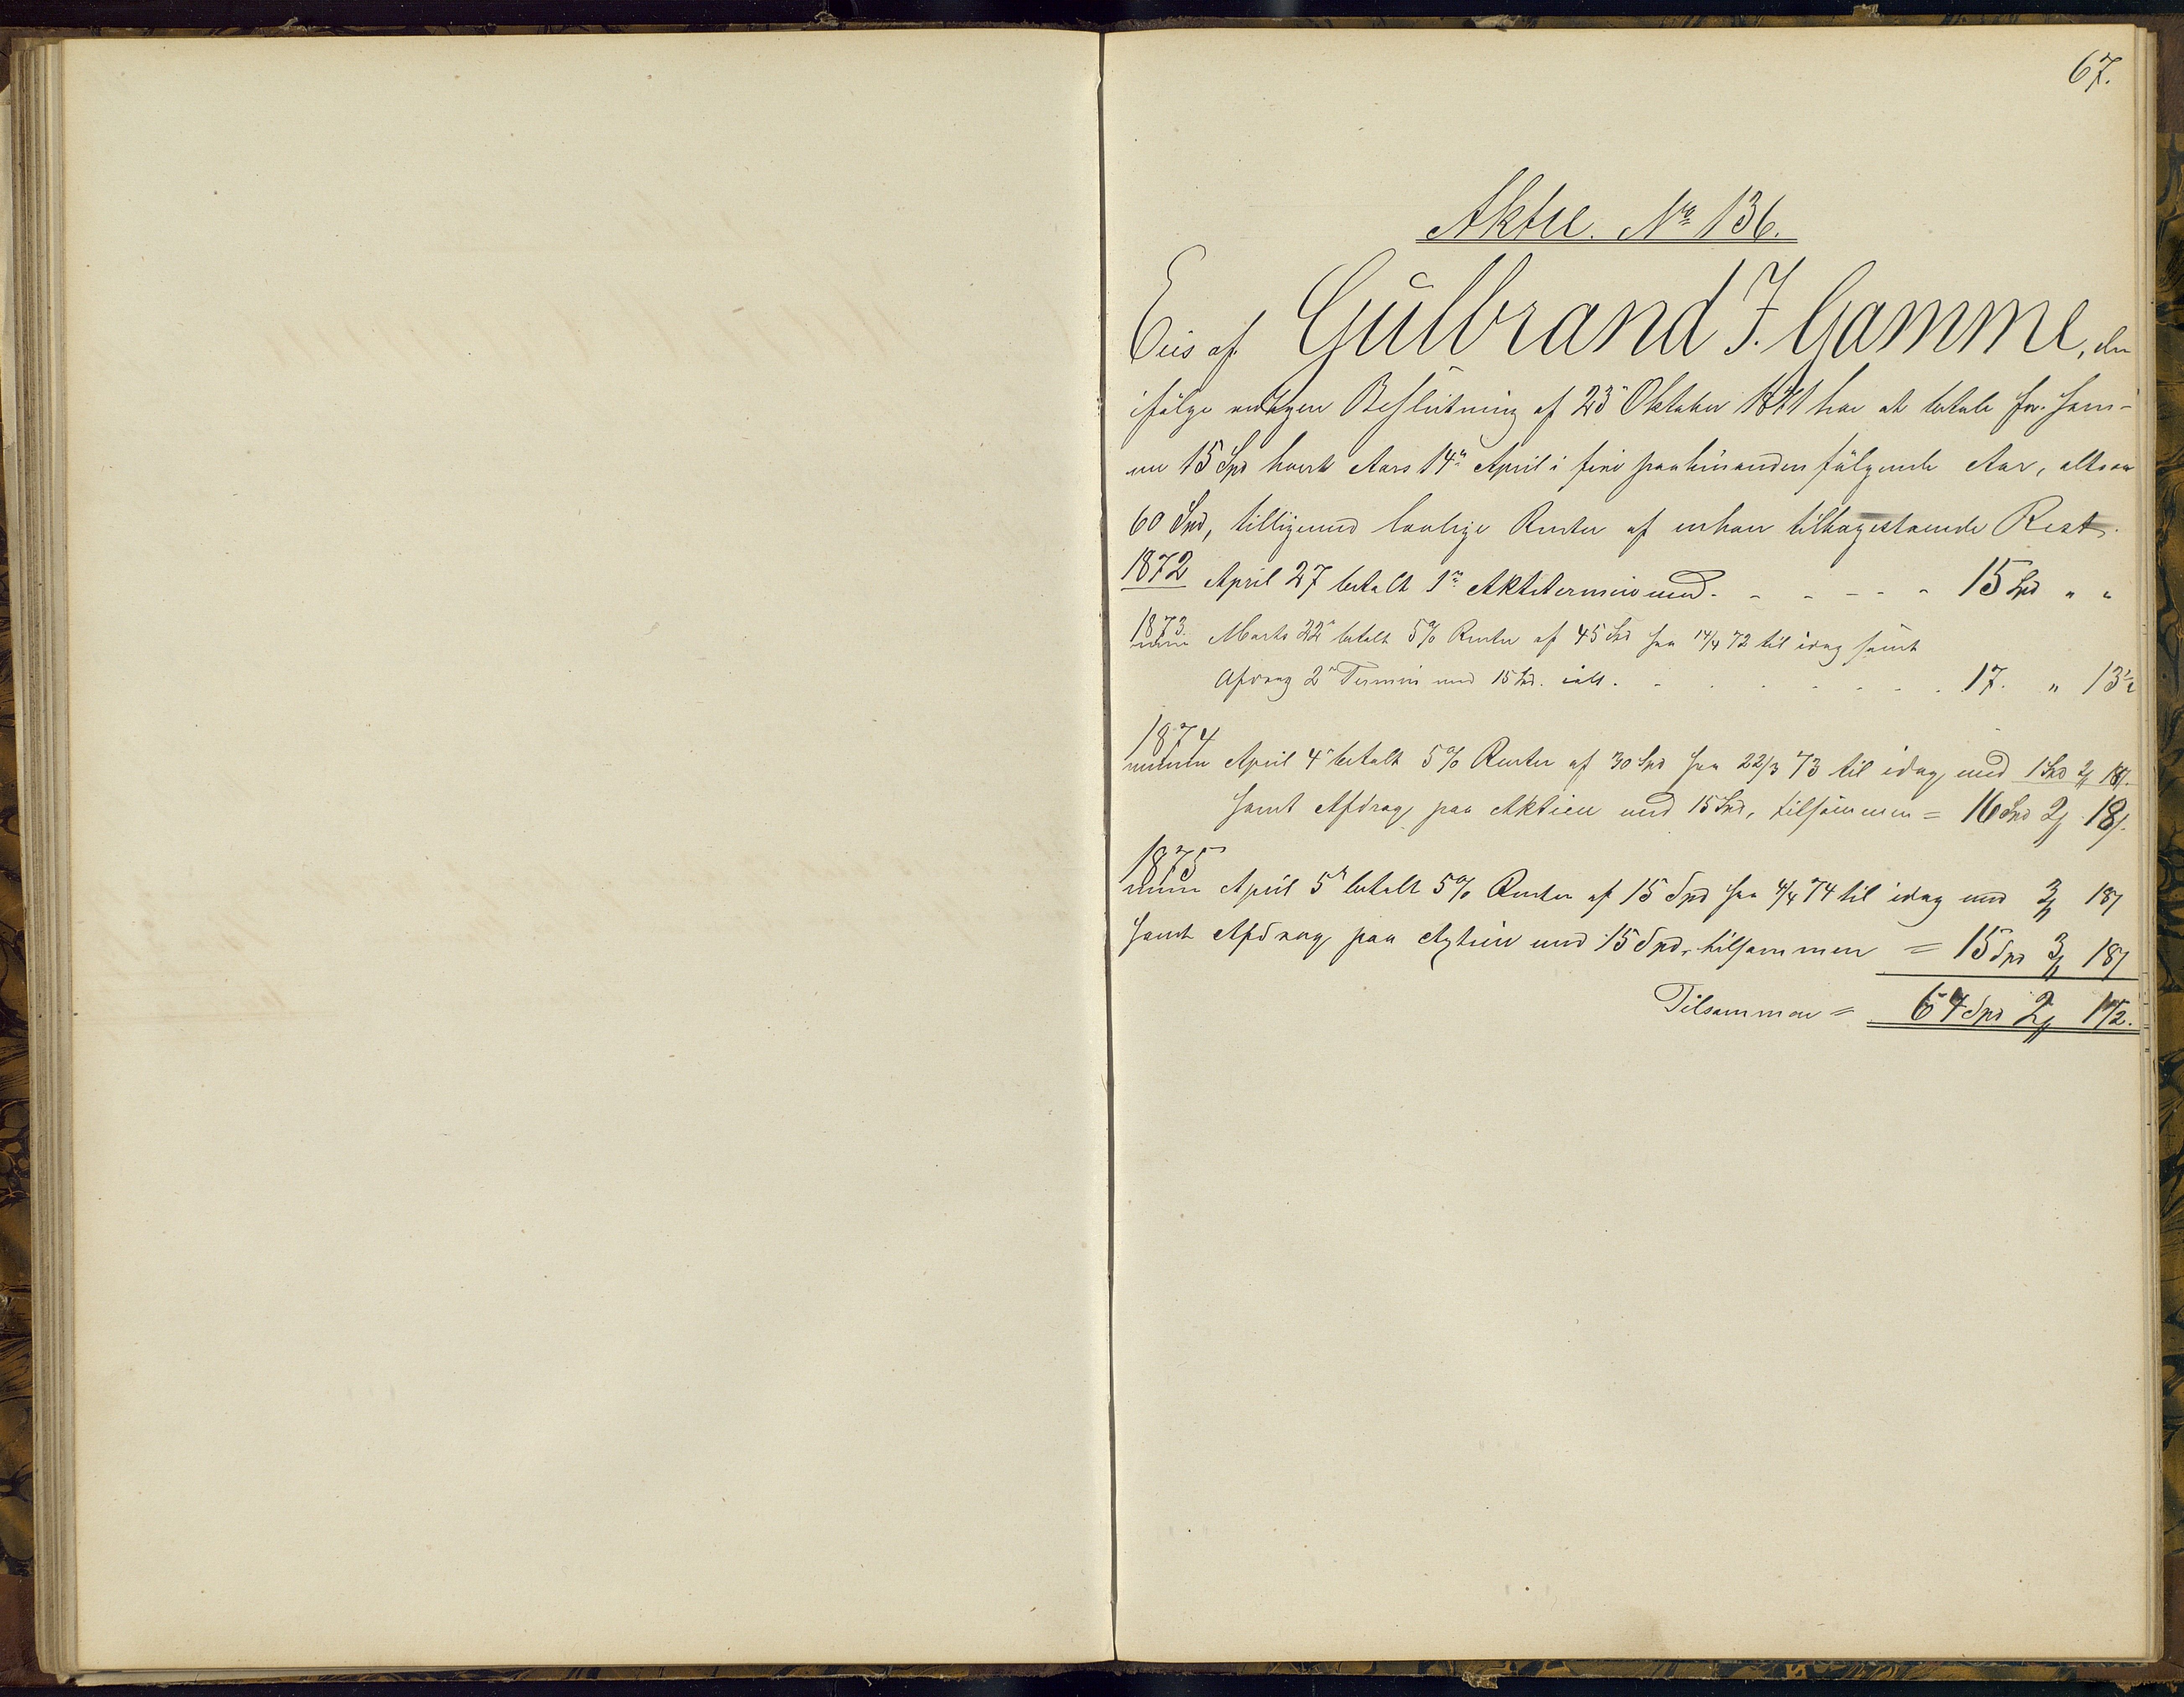 67.
Aktie. No 136.
Eies af Gulbrand J. Gamme, der
ifølge Beslutning af 23 Oktober 1871 har at betale for sam-
me 15 Spd hvert Aars 14de April i fire paahinanden følgende Aar, altsaa
60 Spd, tilligemed lovlige Renter af enhver tilbagestaaende Rest.
1872 April 27 betalt 1ste Aktietermin med - - - - - 15 Spd " "
1873. Marts 22 betalt 5% Renter af 45 Spd fra 14/4 72 til idag samt
Afdrag 2den Termin med 15 Spd. ialt . . . . . . . 17. " 13½
1874
April 4de betalt 5% Renter af 30 Spd fra 22/3 73 til idag, med 1 Spd 2 18
samt Afdrag paa Aktien med 15 Spd, tilsammen = 16 Spd 2 18
1875
April 5te betalt 5% Renter af 15 Spd fra 4/4 74 til idag med 3 18
samt Afdrag paa Aktien med 15 Spd, tilsammen = 15 Spd 3 18
Tilsammen = 64 Spd 2